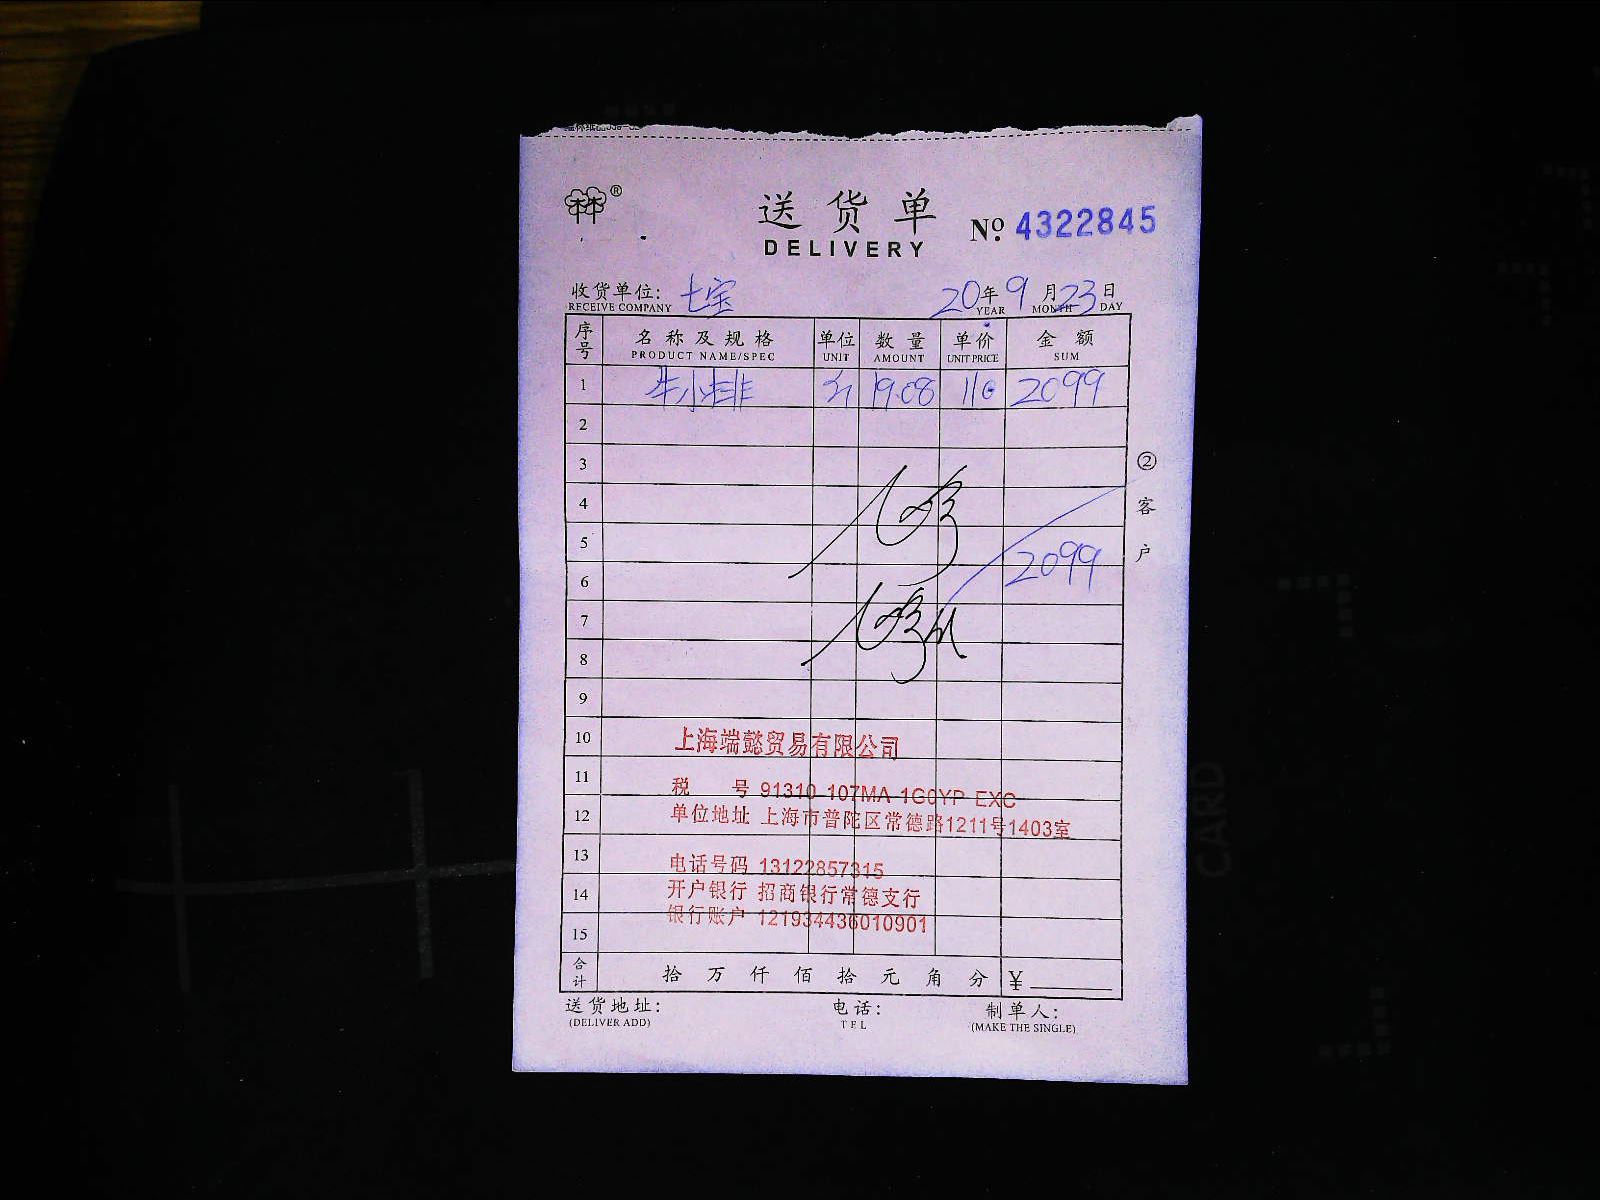 林®
送货单
DELIVERY
№ 4322845
收货单位: 七宝 20年9月23日
RECEIVE COMPANY YEAR MONTH DAY
序号 名称及规格 单位 数量 单价 金额
PRODUCT NAME/SPEC UNIT AMOUNT UNIT PRICE SUM
1 牛小排 斤 19.08 110 2099
2
3
4
5
6 2099
7
8
9
10
上海端懿贸易有限公司
11
税 号 91310 107MA 1G0YP EXC
12
单位地址 上海市普陀区常德路1211号1403室
13
电话号码 13122857315
14
开户银行 招商银行常德支行
15
银行账户 121934436010901
合计 拾 万 仟 佰 拾 元 角 分 ¥
送货地址: 电话: 制单人:
(DELIVER ADD) TEL (MAKE THE SINGLE)
②客户
CARD